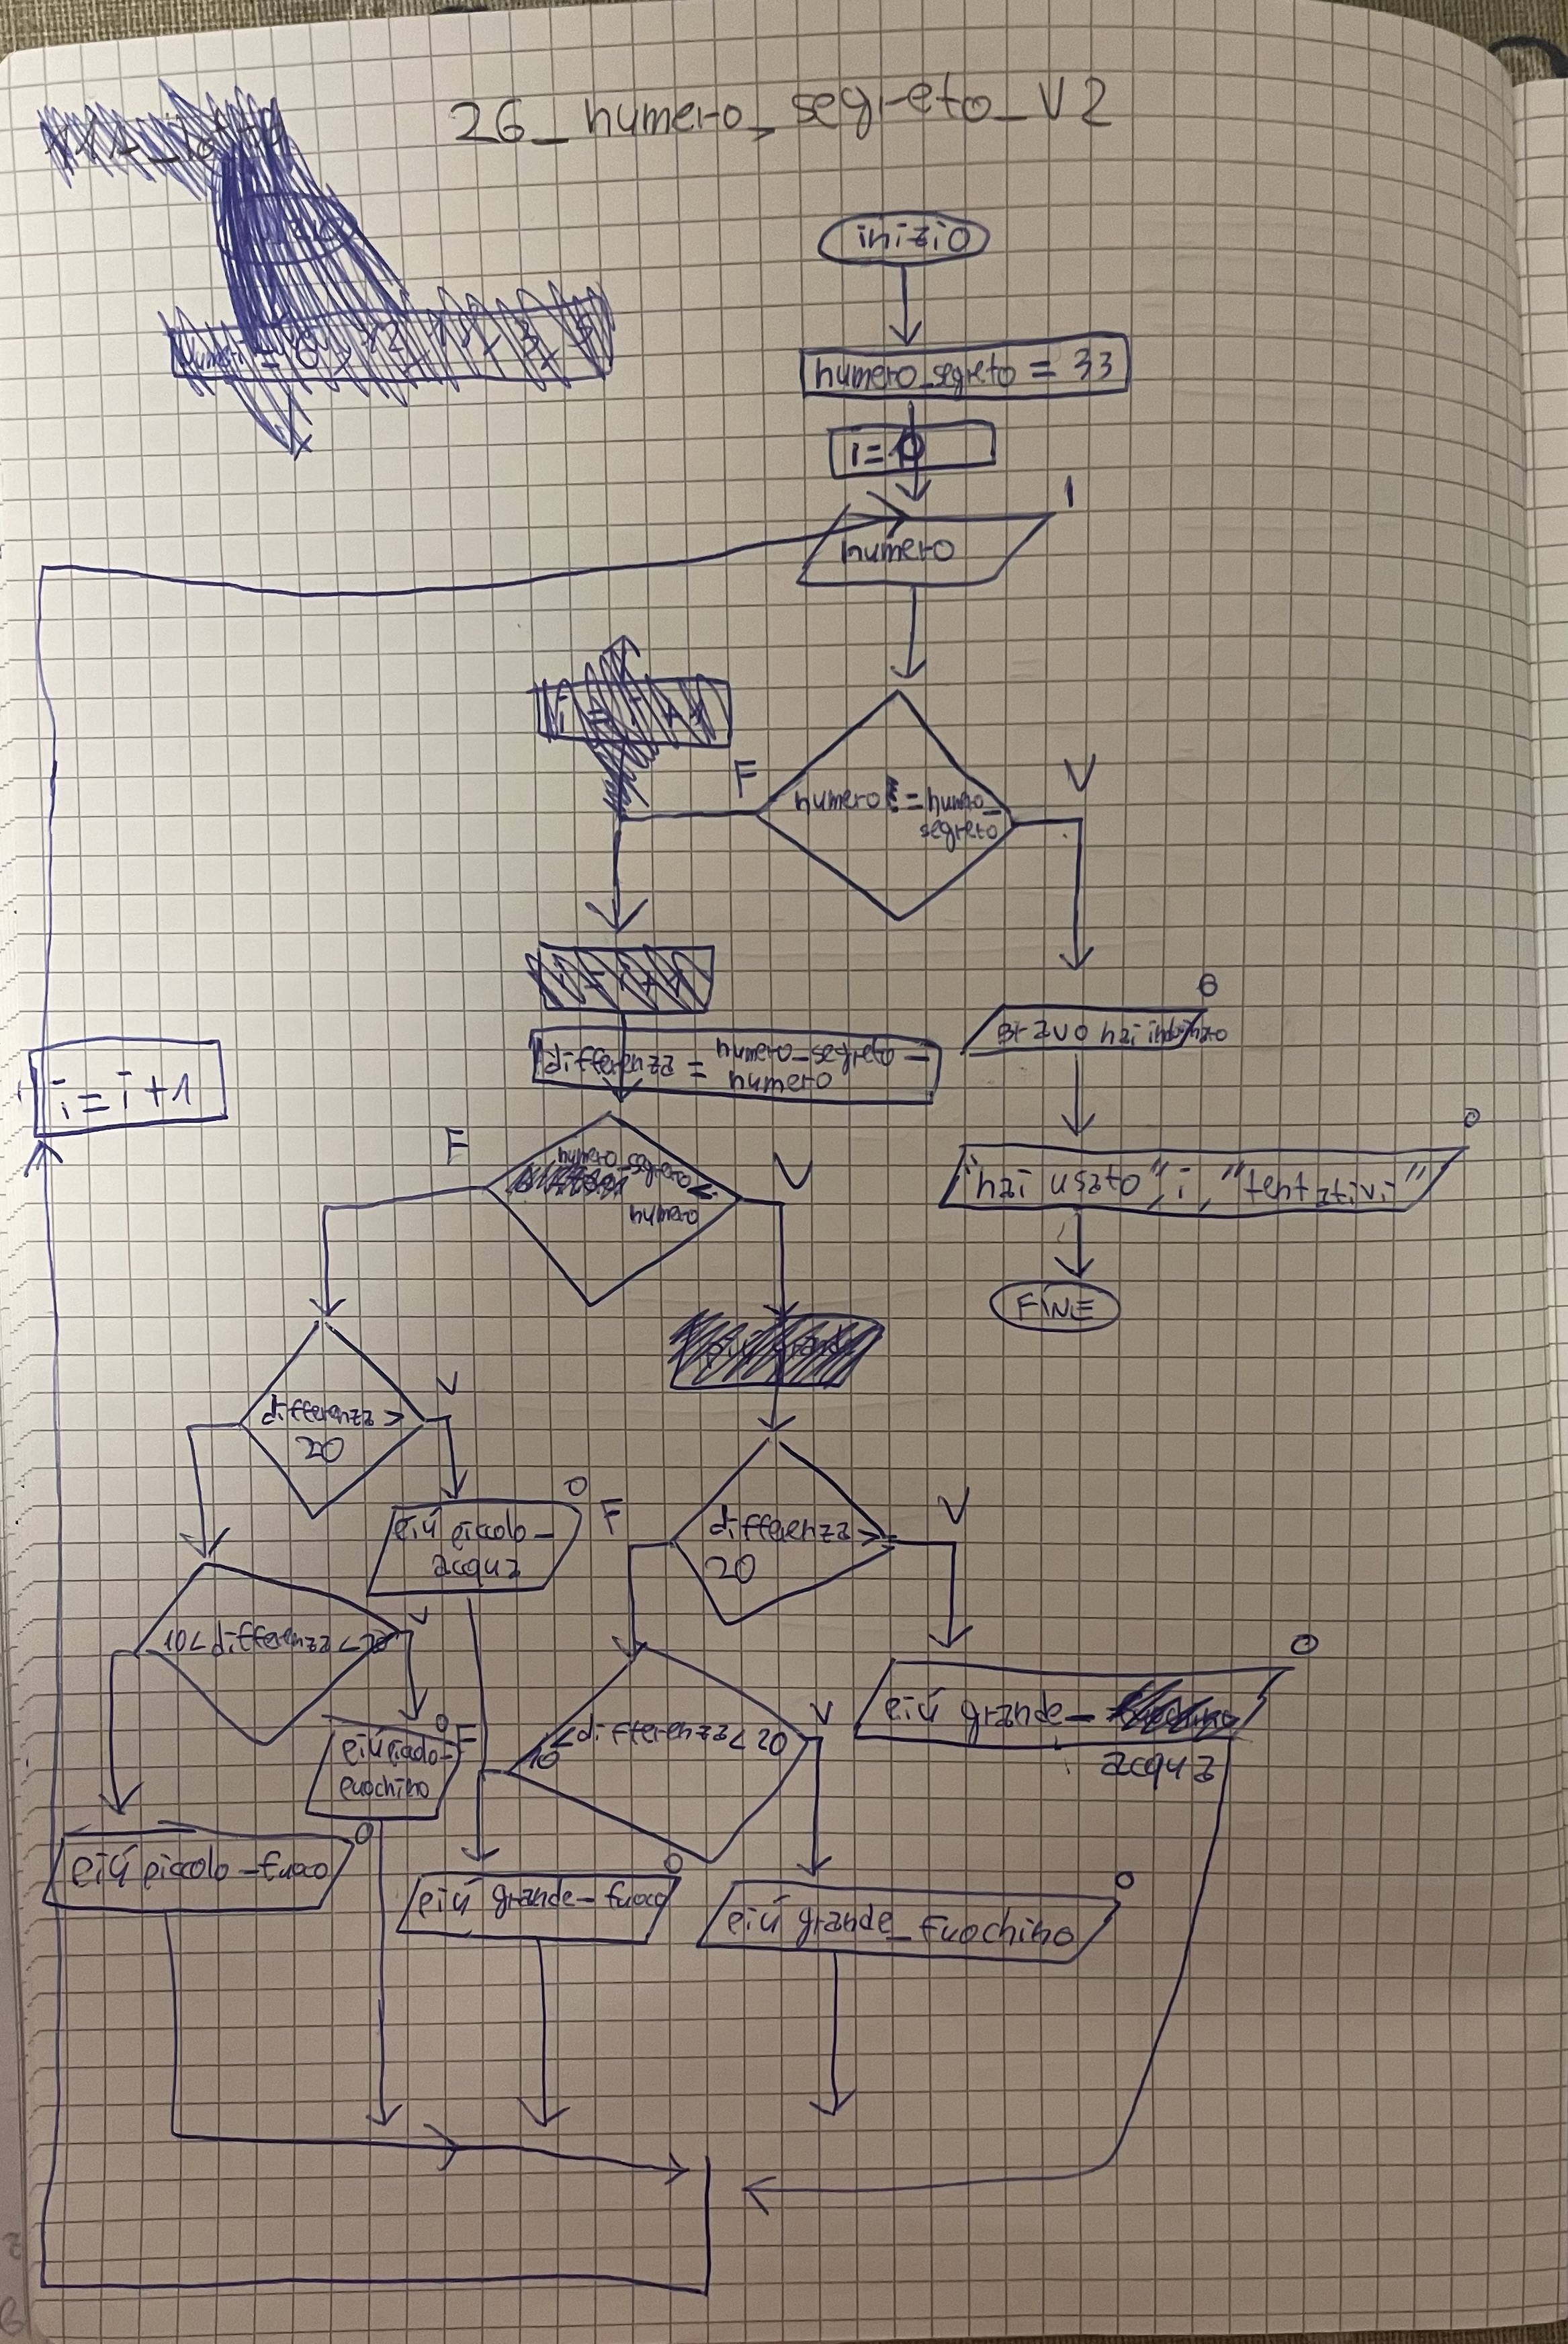 26_numero_segreto_V2
inizio
numero_segreto = 33
i=0
I
numero
F
V
numero == numero_
segreto
O
Bravo hai indovinato
differenza = numero_segreto -
numero
i=i+1
O
"hai usato", i, "tentativi"
F
V
numero_segreto <
numero
FINE
differenza >
20
V
O
più piccolo -
acqua
F
differenza >=
20
V
10 < differenza < 20
V
O
più piccolo -
fuochino
F
10 < differenza < 20
V
O
più grande -
acqua
O
più piccolo - fuoco
O
più grande - fuoco
O
più grande_fuochino